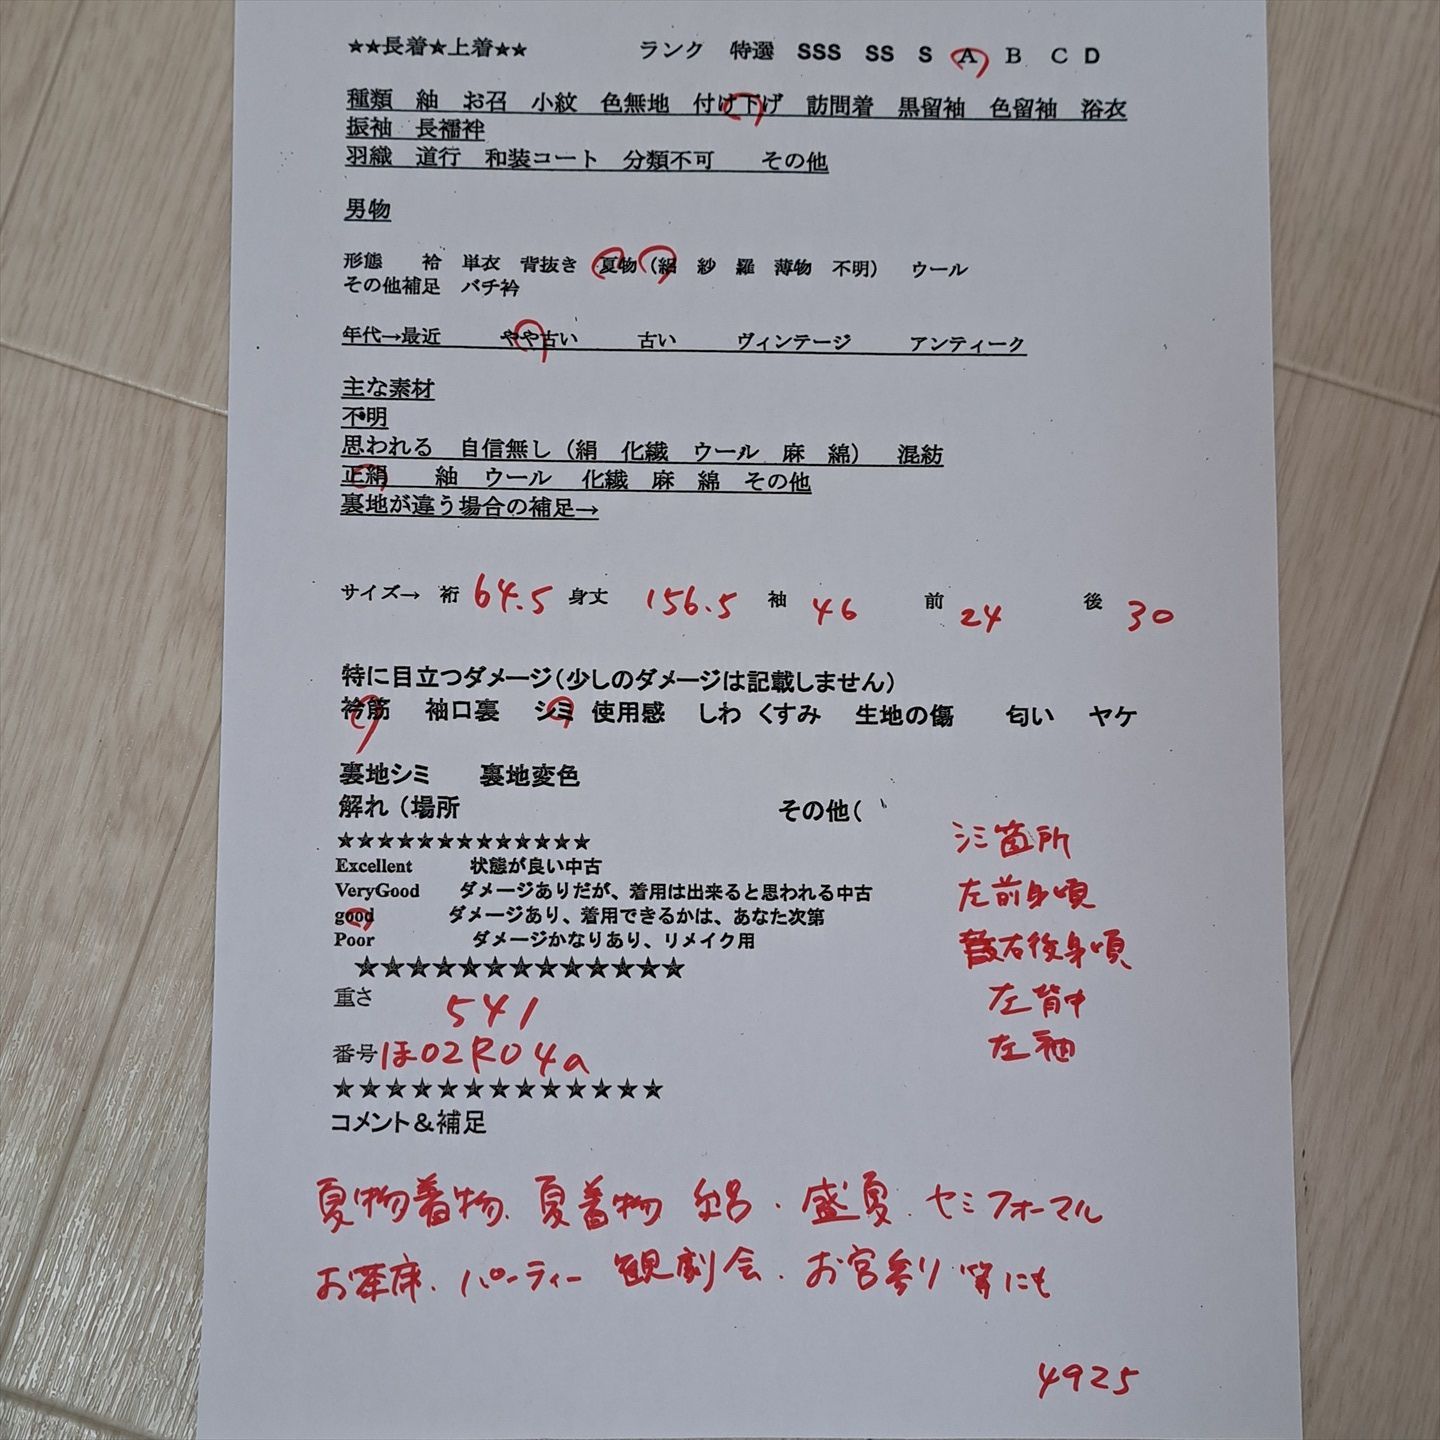 ★★長着★上着★★ ランク 特選 SSS SS S A B C D
種類 紬 お召 小紋 色無地 付け下げ 訪問着 黒留袖 色留袖 浴衣
振袖 長襦袢
羽織 道行 和装コート 分類不可 その他
男物
形態 袷 単衣 背抜き 夏物（絽 紗 羅 薄物 不明） ウール
その他補足 バチ衿
年代→最近 やや古い 古い ヴィンテージ アンティーク
主な素材
不明
思われる 自信無し（絹 化繊 ウール 麻 綿） 混紡
正絹 紬 ウール 化繊 麻 綿 その他
裏地が違う場合の補足→
サイズ→ 裄 64.5 身丈 156.5 袖 46 前 24 後 30
特に目立つダメージ（少しのダメージは記載しません）
衿筋 袖口裏 シミ 使用感 しわ くすみ 生地の傷 匂い ヤケ
裏地シミ 裏地変色
解れ（場所 その他（
シミ箇所
★★★★★★★★★★★★★
Excellent 状態が良い中古
VeryGood ダメージありだが、着用は出来ると思われる中古
左前身頃
good ダメージあり、着用できるかは、あなた次第
Poor ダメージかなりあり、リメイク用
右後身頃
★★★★★★★★★★★★★
重さ 541
左背中
番号 ほ02R04a
左袖
★★★★★★★★★★★★★
コメント＆補足
夏物着物、夏着物 絽・盛夏・セミフォーマル
お茶席、パーティー 観劇会、お宮参り等にも
4925